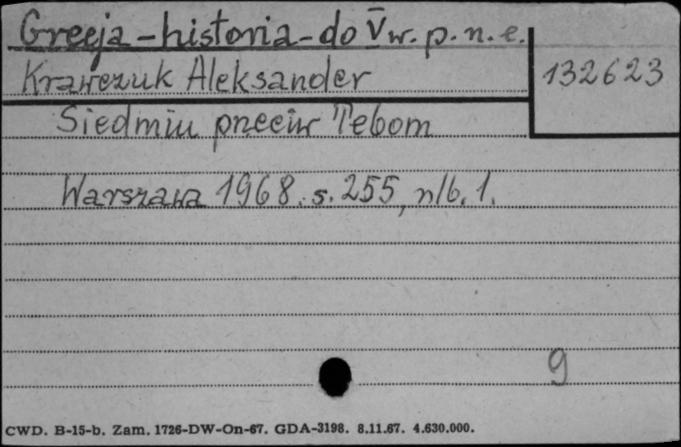 Grecja - historia - do V w. p. n. e.
Krawczuk Aleksander
132623
Siedmiu przeciw Tebom
Warszawa 1968. s. 255, nlb. 1.
9
CWD. B-15-b. Zam. 1726-DW-On-67. GDA-3198. 8.11.67. 4.630.000.